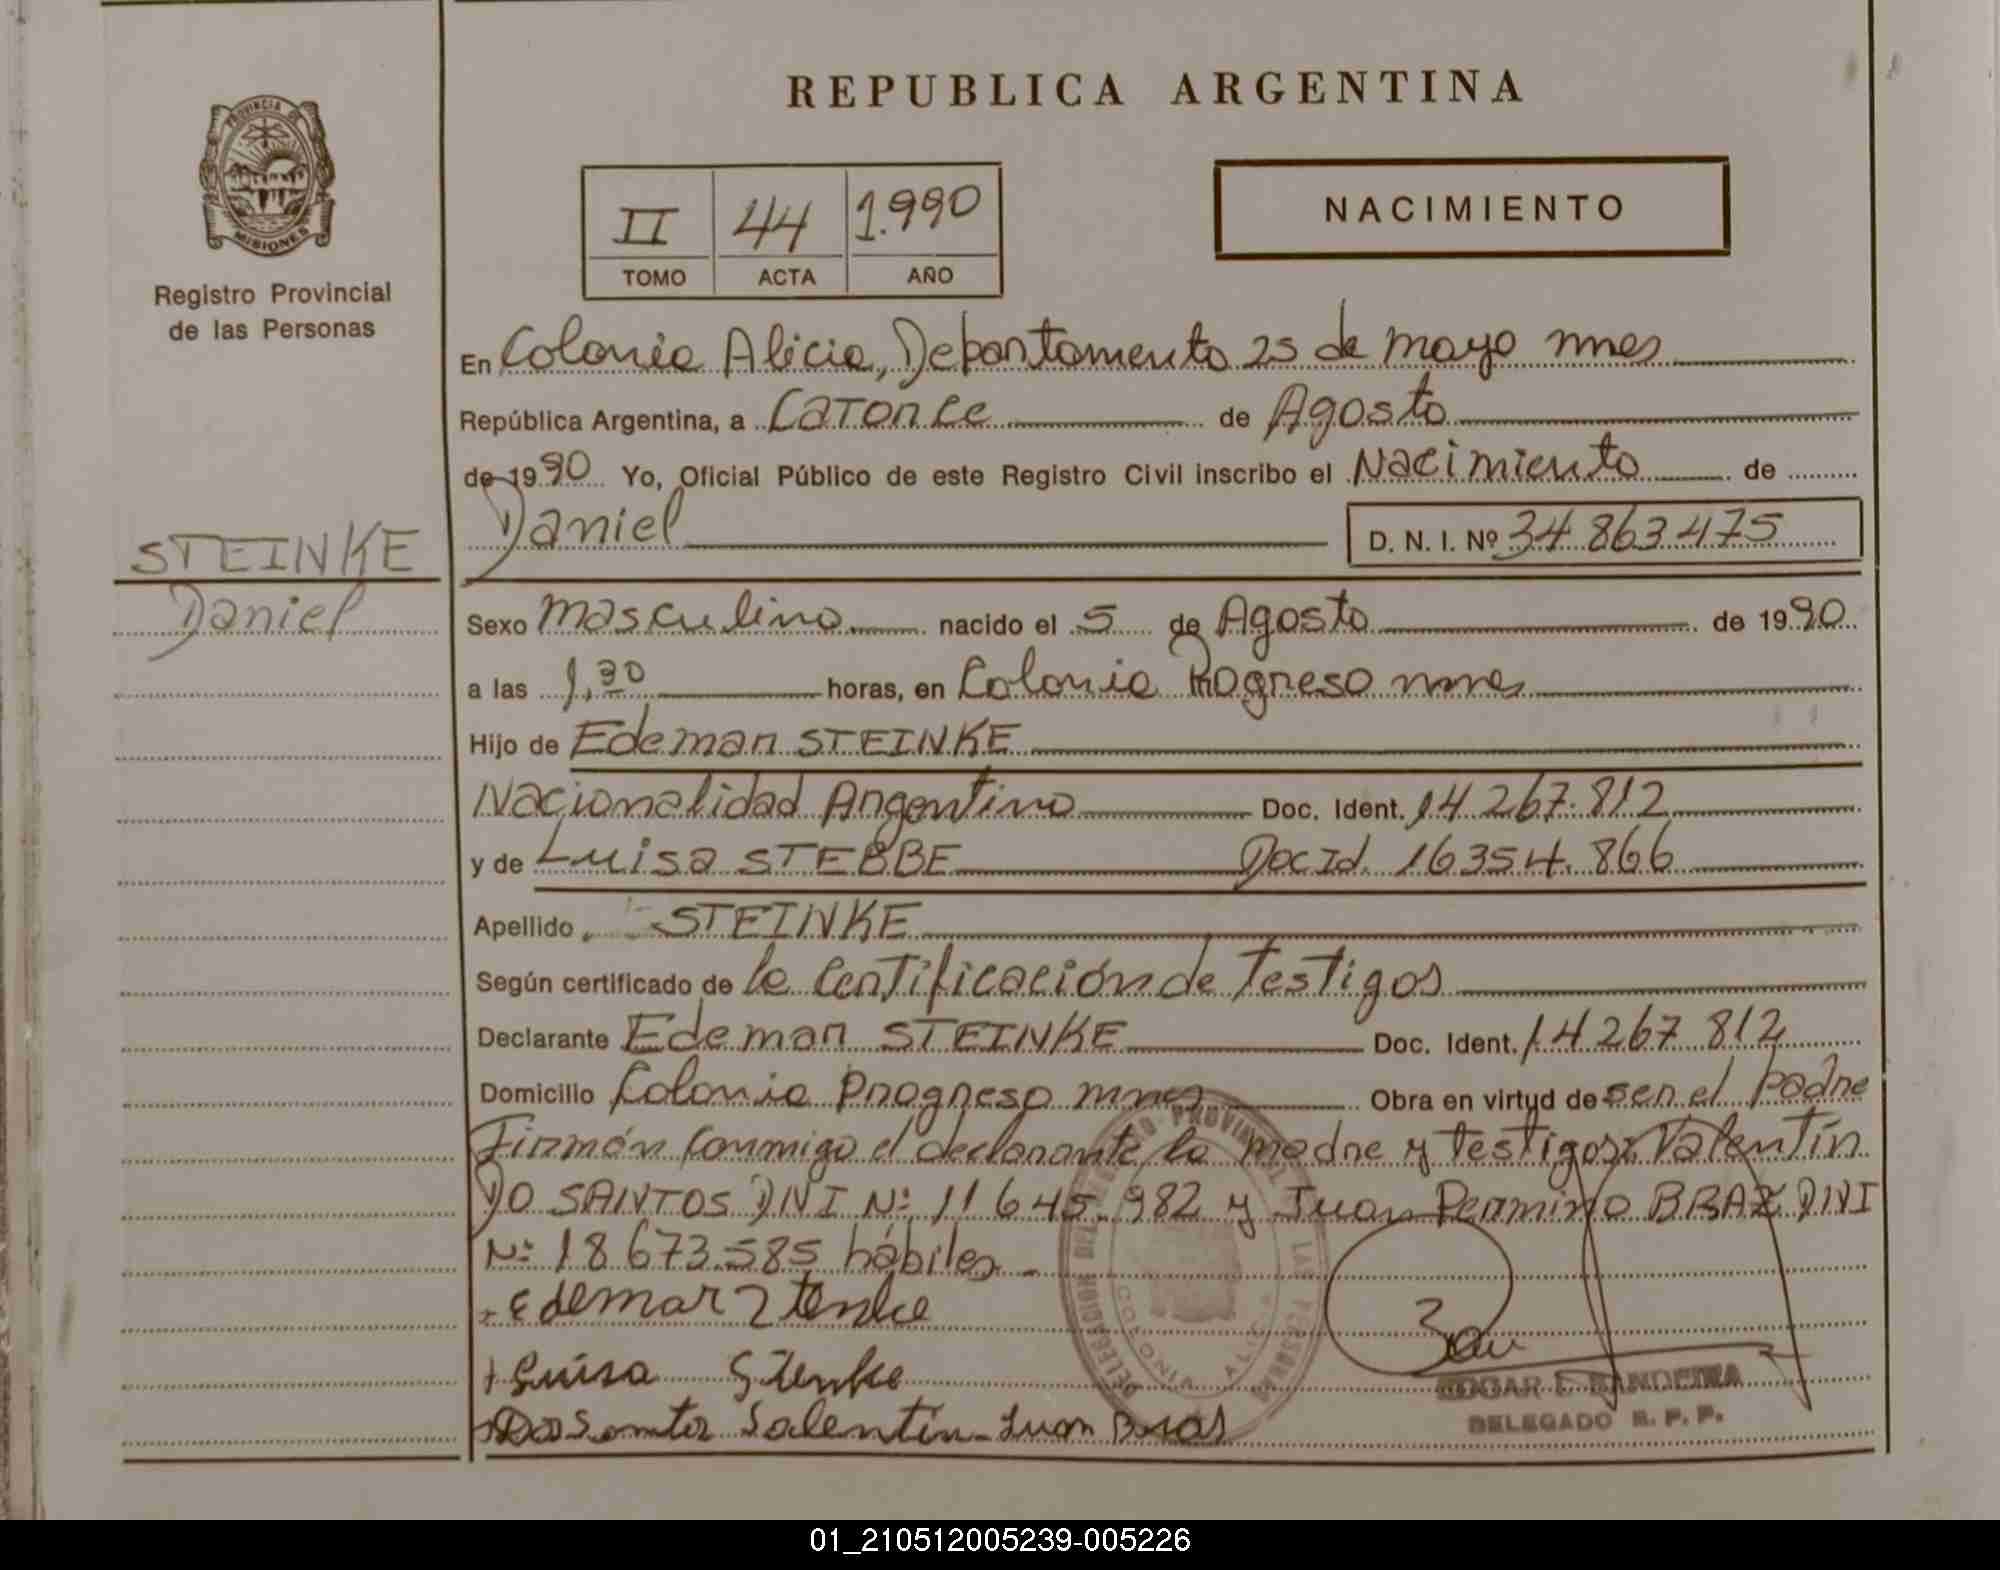 REPUBLICA ARGENTINA
PROVINCIA DE
MISIONES
Registro Provincial
de las Personas
II 44 1.990
TOMO ACTA AÑO
NACIMIENTO
En Colonia Alicia, Departamento 25 de mayo mnes
República Argentina, a Catorce de Agosto
de 1990 Yo, Oficial Público de este Registro Civil inscribo el Nacimiento de
Daniel D. N. I. Nº 34.863.475
STEINKE
Daniel
Sexo masculino nacido el 5 de Agosto de 1990
a las 1,30 horas, en Colonia Progreso mnes
Hijo de Edemar STEINKE
Nacionalidad Argentino Doc. Ident. 14.267.812
y de Luisa STEBBE Doc Id. 16354.866
Apellido STEINKE
Según certificado de la Certificación de Testigos
Declarante Edemar STEINKE Doc. Ident. 14 267 812
Domicilio Colonia Progreso mnes Obra en virtud de ser el padre
Firmán conmigo el declarante la madre y testigos: Valentín
DO SANTOS DNI Nº 11 645.982 y Juan Permino BRAZ DNI
Nº 18 673.585 hábiles
Edemar Stenke
Luisa Stenke
Dos Santos Valentin - Juan Bras
DELEGACION DEL REGISTRO PROVINCIAL DE LAS PERSONAS
COLONIA ALICIA
EDGAR BANDEIRA
DELEGADO R. P. P.
01_210512005239-005226